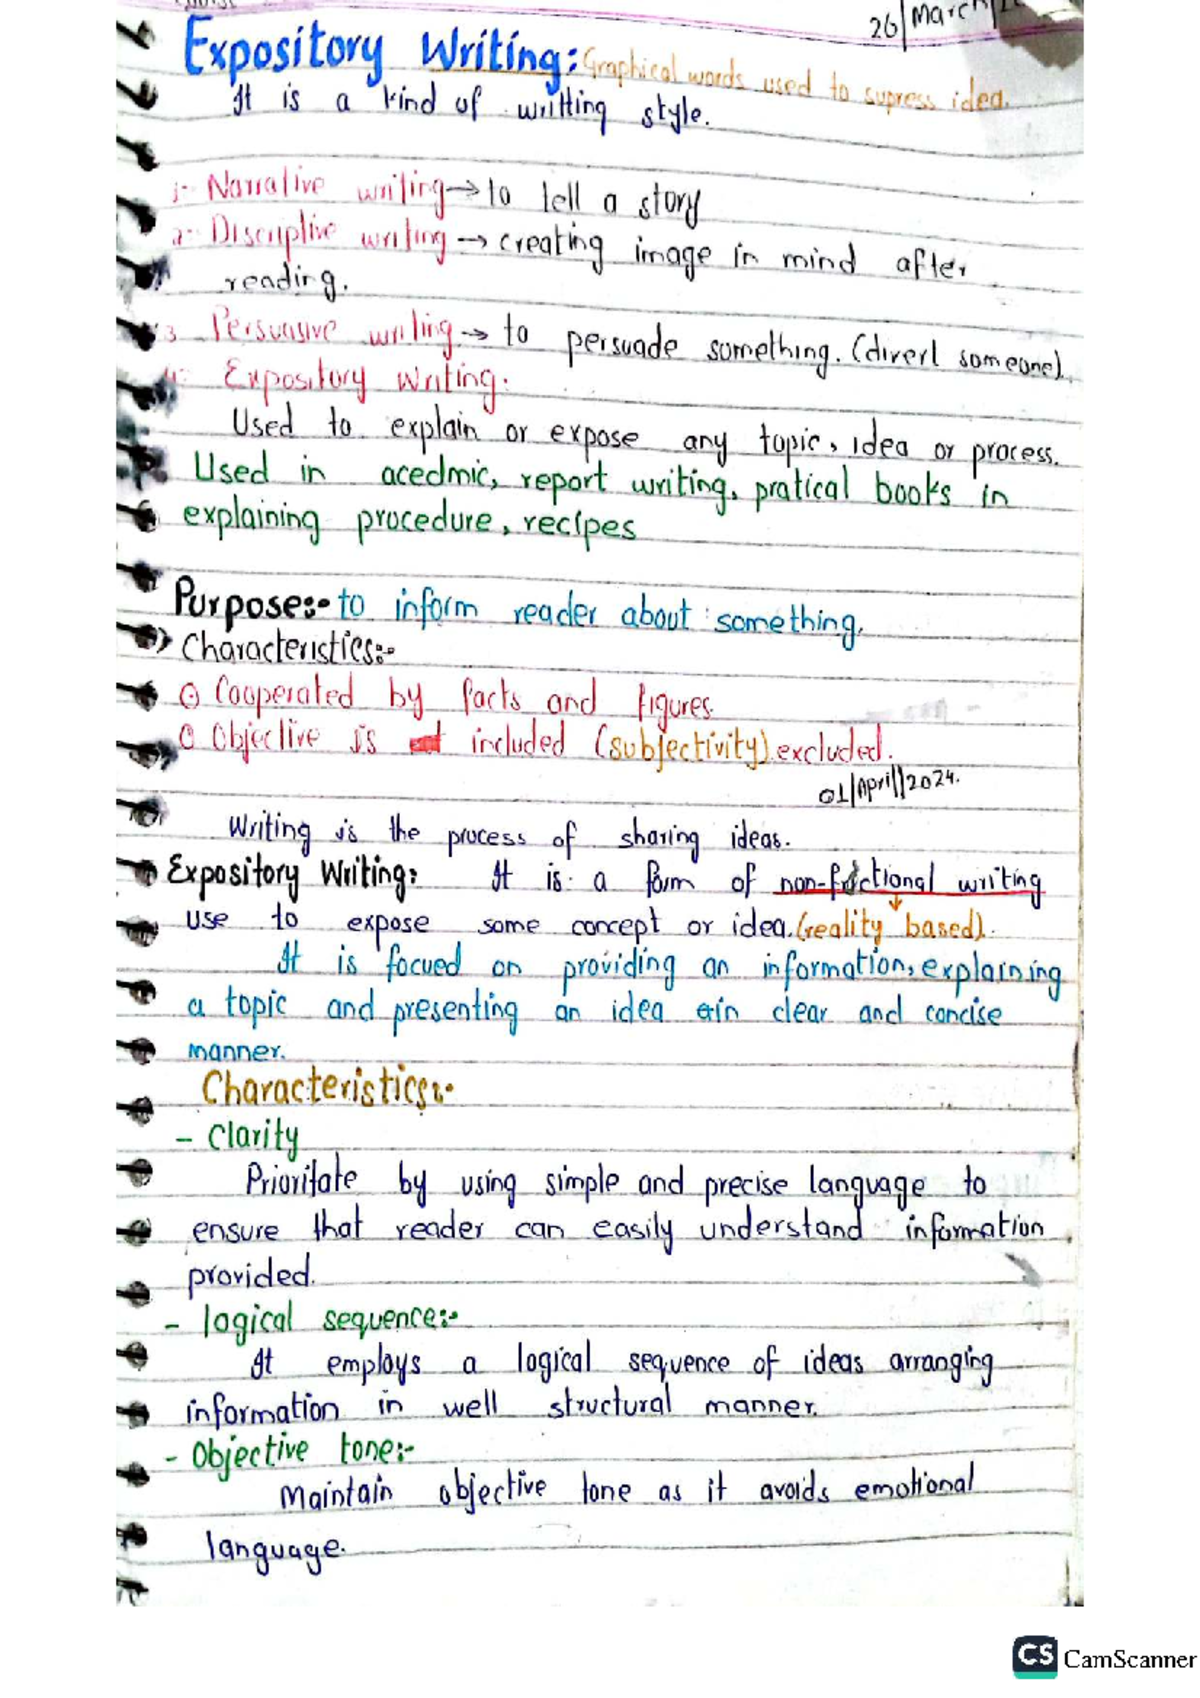 26/March/
Expository Writing: Graphical words used to supress idea.
It is a kind of writting style.
1- Narrative writing → to tell a story
2- Discriptive writing → creating image in mind after
reading.
3- Persuasive writing → to persuade something. (divert someone).
4- Expository Writing.
Used to explain or expose any topic, idea or process.
Used in acedmic, report writing, pratical books in
explaining procedure, recipes
Purpose:- to inform reader about something.
Characteristics:-
Cooperated by facts and figures.
Objective is included (subjectivity) excluded.
01/April/2024.
Writing is the process of sharing ideas.
Expository Writing: It is a form of non-frictional writing
use to expose some concept or idea. (reality based).
It is focued on providing an information, explaining
a topic and presenting an idea in clear and concise
manner.
Characteristics:-
- Clarity
Prioritate by using simple and precise language to
ensure that reader can easily understand information
provided.
- logical sequence:-
It employs a logical sequence of ideas arranging
information in well structural manner.
- Objective tone:-
Maintain objective tone as it avoids emotional
language.
CS CamScanner